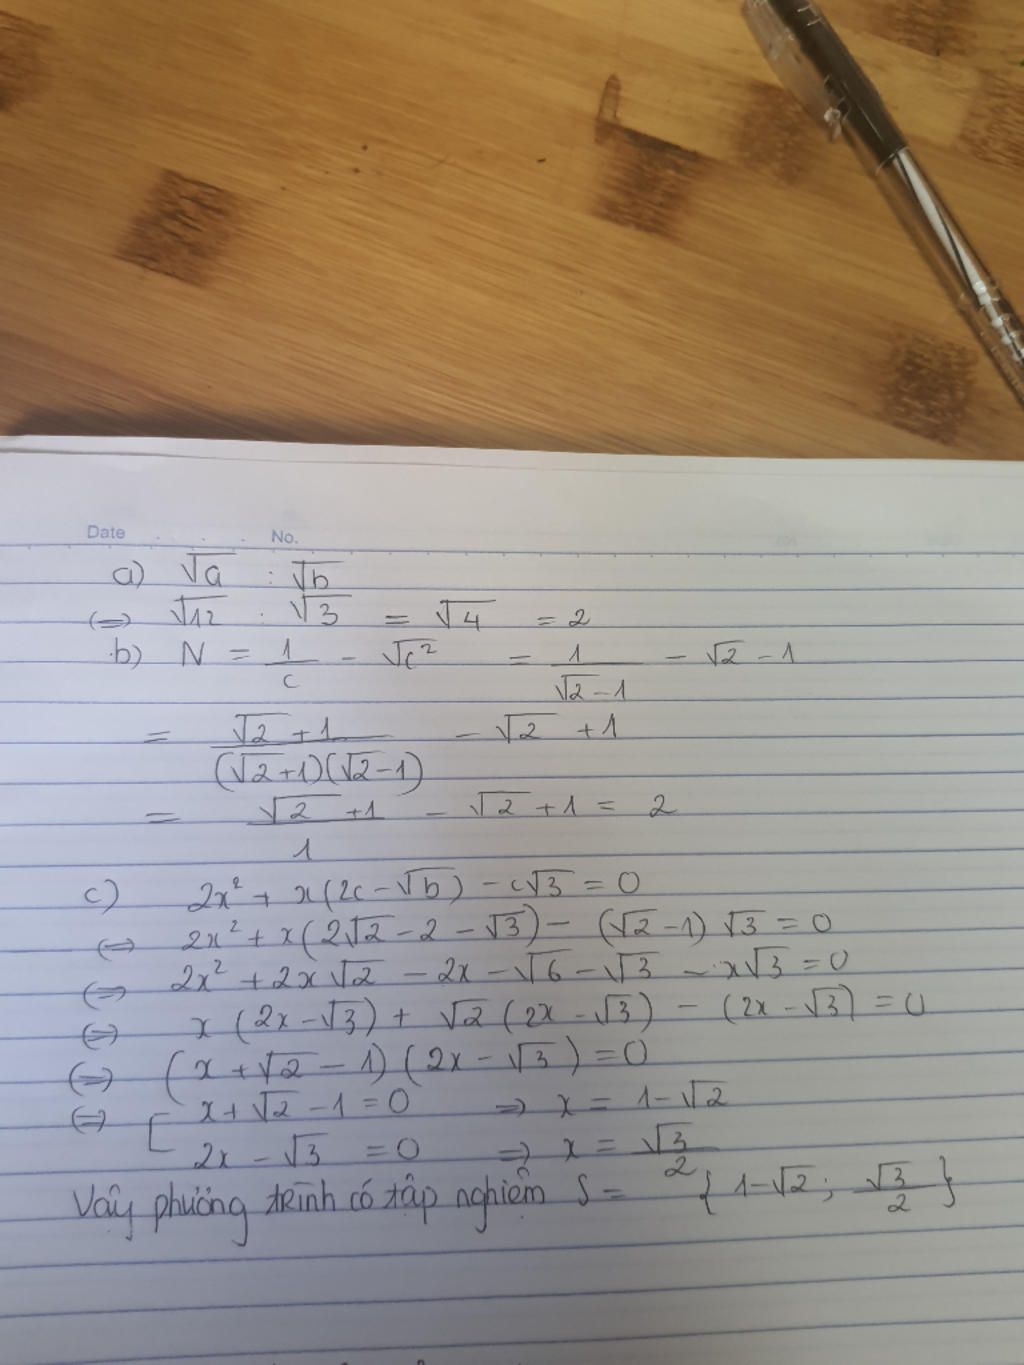 Date . . . No.
a) √a : √b
(=) √12 : √3 = √4 = 2
b) N = 1/c - √c² = 1/(√2-1) - √2 - 1
= (√2+1)/((√2+1)(√2-1)) - √2 + 1
= (√2+1)/1 - √2 + 1 = 2
c) 2x² + x(2c - √b) - c√3 = 0
(=) 2x² + x(2√2 - 2 - √3) - (√2-1)√3 = 0
(=) 2x² + 2x√2 - 2x - √6 - √3 - x√3 = 0
(=) x(2x-√3) + √2(2x-√3) - (2x-√3) = 0
(=) (x+√2-1)(2x-√3) = 0
(=) [ x+√2-1 = 0 => x = 1-√2
2x-√3 = 0 => x = √3/2
Vậy phương trình có tập nghiệm S = {1-√2; √3/2}